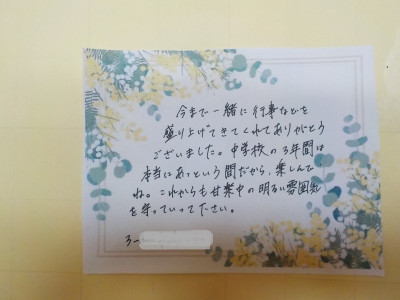 今まで一緒に行事などを
盛り上げてきてくれてありがとう
ございました。中学校の3年間は
本当にあっという間だから、楽しんで
ね。これからも甘楽中の明るい雰囲気
を守っていってださい。
3-